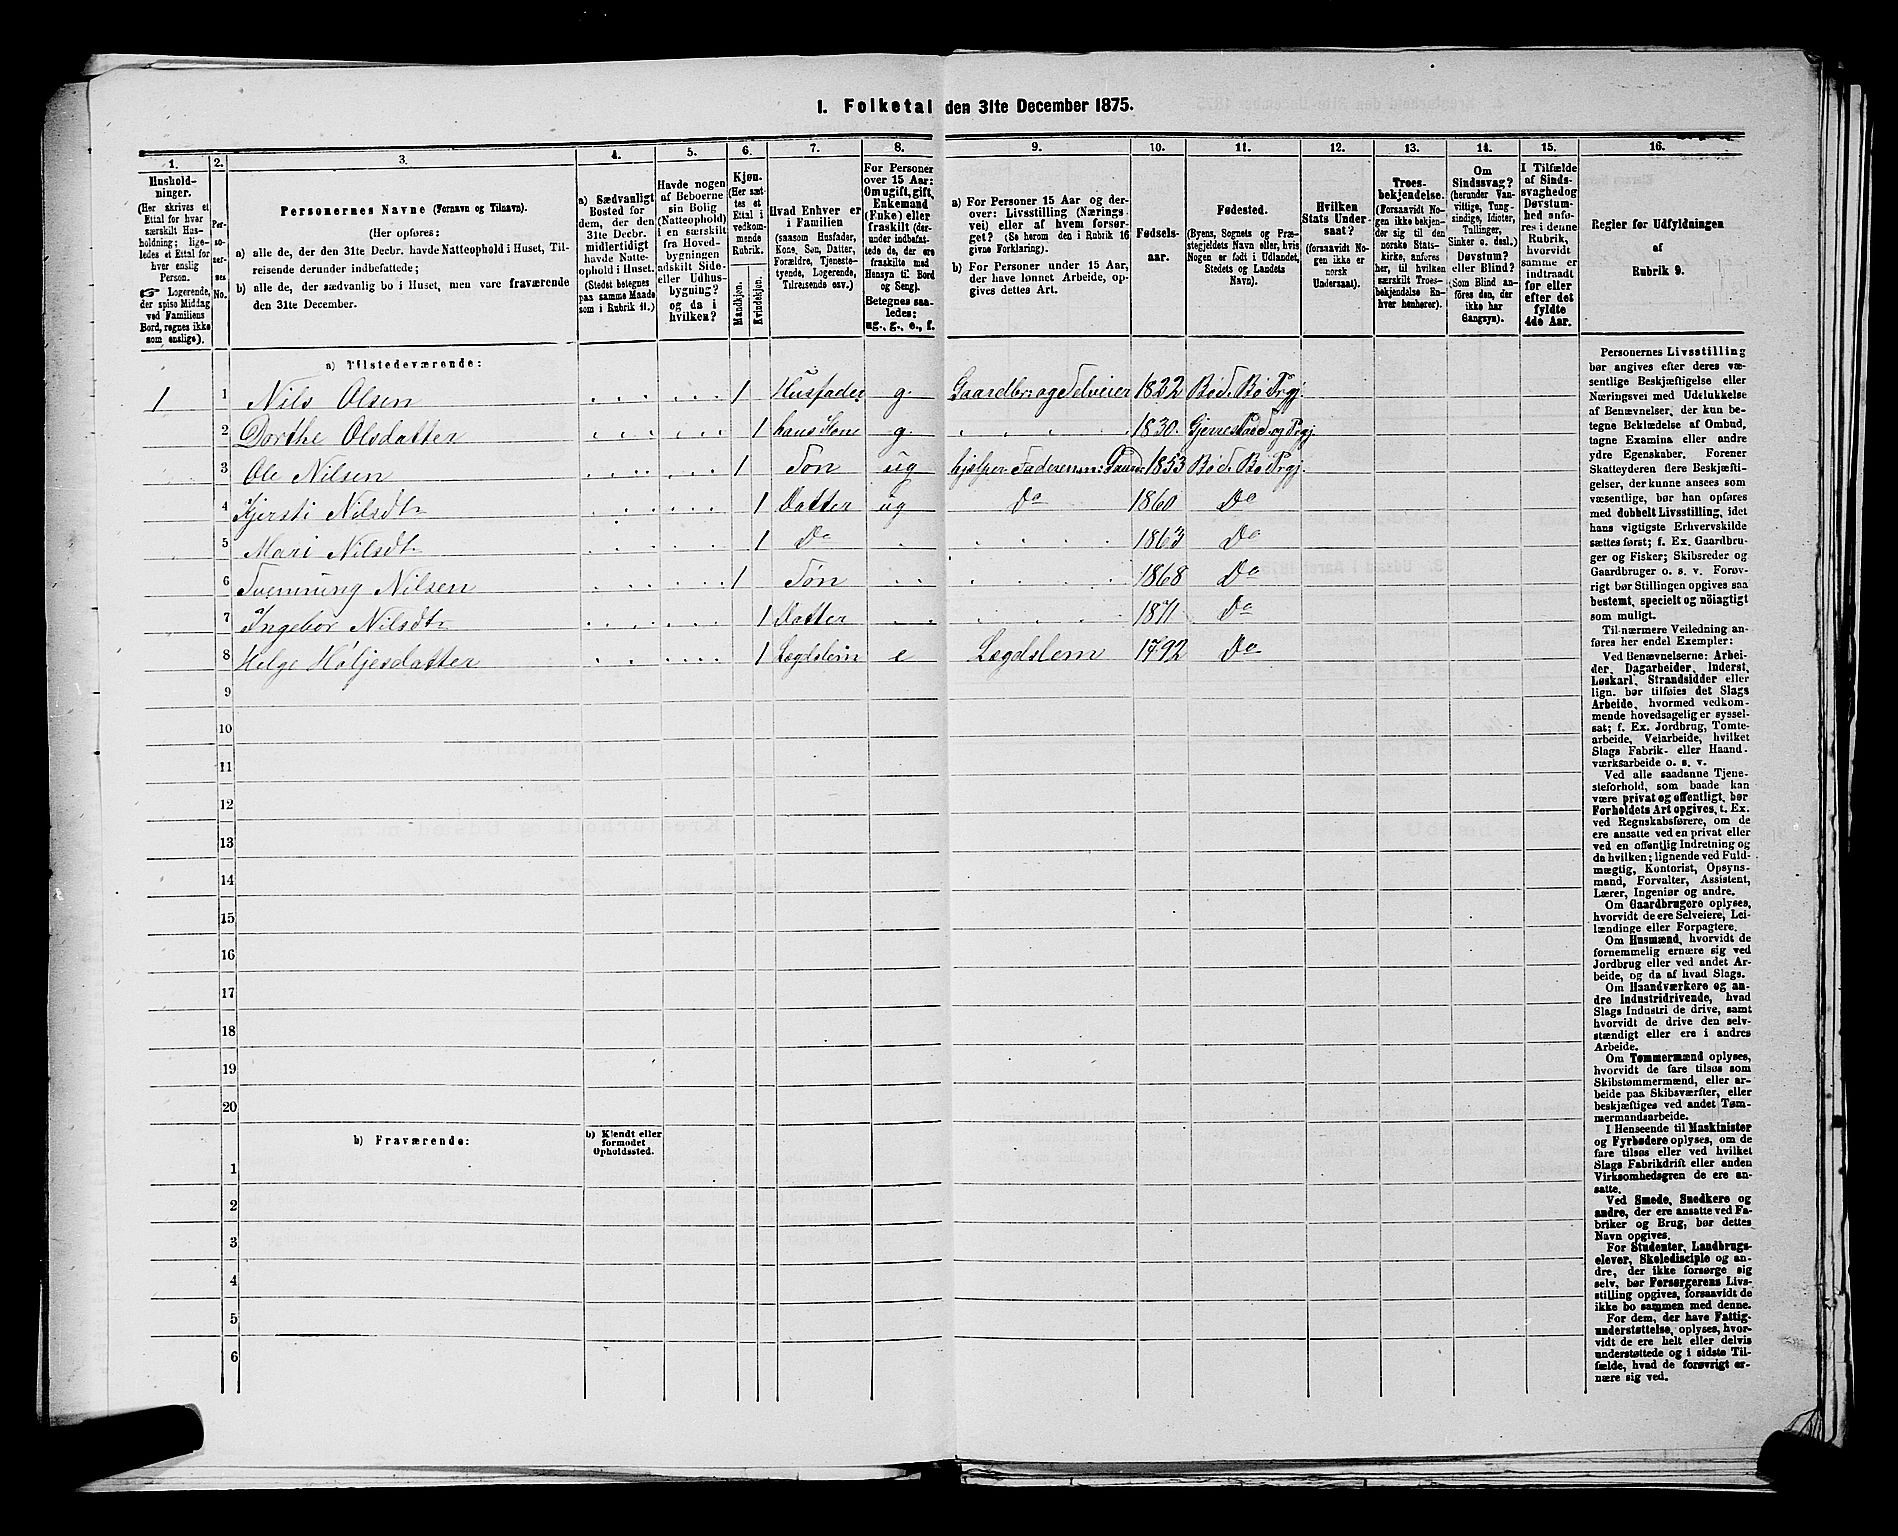 I. Folketal den 31te December 1875.
1. 2. 3. 4. 5. 6. 7. 8. 9. 10. 11. 12. 13. 14. 15. 16.
Hushold-
ninger.
(Her skrives et
Ettal for hver
særskilt Hus-
holdning; lige-
ledes et Ettal for
hver enslig
Person.
☞ Logerende,
der spise Middag
ved Familiens
Bord, regnes ikke
som enslige).
Per-
soner-
nes
No.
Personernes Navne (Fornavn og Tilnavn).
(Her opføres:
a) alle de, der den 31te Decbr. havde Natteophold i Huset, Til-
reisende derunder indbefattede;
b) alle de, der sædvanlig bo i Huset, men vare fraværende
den 31te December.
a) Sædvanligt
Bosted for
dem, der den
31te Decbr.
midlertidigt
havde Natte-
ophold i Huset.
(Stedet betegnes
paa samme Maade
som i Rubrik 11.)
Havde nogen
af Beboerne
sin Bolig
(Natteophold)
i en særskilt
fra Hoved-
bygningen
adskilt Side-
eller Udhus-
bygning?
og da i
hvilken?
Kjøn.
(Her sæt-
tes et
Ettal i
vedkom-
mende
Rubrik.
Mandkjøn.
Kvindekjøn.
Hvad Enhver er
i Familien
(saasom Husfader,
Kone, Søn, Datter,
Forældre, Tjeneste-
tyende, Logerende,
Tilreisende osv.)
For Personer
over 15 Aar:
Om ugift, gift,
Enkemand
(Enke) eller
fraskilt (der-
under indbefat-
tede de, der ere
fraskilte med
Hensyn til Bord
og Seng).
Betegnes saa-
ledes:
ug., g., e., f.
a) For Personer 15 Aar og der-
over: Livsstilling (Nærings-
vei) eller af hvem forsør-
get? (Se herom den i Rubrik 16
givne Forklaring).
b) For Personer under 15 Aar,
der have lønnet Arbeide, op-
gives dettes Art.
Fødsels-
aar.
Fødested.
(Byens, Sognets og Præ-
stegjeldets Navn eller, hvis
Nogen er født i Udlandet,
Stedets og Landets
Navn).
Hvilken
Stats Under-
saat?
(forsaavidt No-
gen ikke er
norsk
Undersaat).
Troes-
bekjendelse.
(Forsaavidt No-
gen ikke bekjen-
der sig til den
norske Stats-
kirke, anføres
her, til hvilken
særskilt Troes-
bekjendelse En-
hver henhører).
Om
Sindssvag?
(herunder Van-
vittige, Tung-
sindige, Idioter,
Tullinger,
Sinker o. desl.)
Døvstum?
eller Blind?
(Som Blind an-
føres den, der
ikke har
Gangsyn).
I Tilfælde
af Sinds-
svaghed og
Døvstum-
hed anfø-
res i denne
Rubrik,
hvorvidt
samme er
indtraadt
før eller
efter det
fyldte
4de Aar.
Regler for Udfyldningen
af
Rubrik 9.
a) Tilstedeværende:
1 1 Nils Olsen 1 Husfader g. Gaardbr: og Selveier 1822 Bø S. Bø Prgj.
2 Dorthe Olsdatter 1 hans Kone g. 1830. Gjerrestad S. og Prgj.
3 Ole Nilsen 1 Søn ug hjelper Faderen m: 1853 Bø S. Bø Prgj.
4 Kjersti Nilsdtr 1 Datter ug Do 1860 Do
5 Mari Nilsdtr 1 Do 1863 Do
6 Svennung Nilsen 1 Søn 1868 Do
7 Ingebor Nilsdtr 1 Datter 1871 Do
8 Helge Høljesdatter 1 Lægdslem e Lægdslem 1792 Do
9
10
11
12
13
14
15
16
17
18
19
20
b) Fraværende: b) Kjendt eller
formodet
Opholdssted.
1
2
3
4
5
6
Personernes Livsstilling
bør angives efter deres væ-
sentlige Beskjæftigelse eller
Næringsvei med Udelukkelse
af Benævnelser, der kun be-
tegne Beklædelse af Ombud,
tagne Examina eller andre
ydre Egenskaber. Forener
Skatteyderen flere Beskjæfti-
gelser, der kunne ansees som
væsentlige, bør han opføres
med dobbelt Livsstilling, idet
hans vigtigste Erhvervskilde
sættes først; f. Ex. Gaardbru-
ger og Fisker; Skibsreder og
Gaardbruger o. s. v. Forøv-
rigt bør Stillingen opgives saa
bestemt, specielt og nöiagtigt
som muligt.
Til nærmere Veiledning an-
føres her endel Exempler:
Ved Benævnelserne: Arbei-
der, Dagarbeider, Inderst,
Løskarl, Strandsidder eller
lign. bør tilføies det Slags
Arbeide, hvormed vedkom-
mende hovedsagelig er syssel-
sat; f. Ex. Jordbrug, Tomte-
arbeide, Veiarbeide, hvilket
Slags Fabrik- eller Haand-
værksarbeide o. s. v.
Ved alle saadanne Tjene-
steforhold, som baade kan
være privat og offentligt, bør
Forholdets Art opgives, t. Ex.
ved Regnskabsførere, om de
ere ansatte ved en privat eller
ved en offentlig Indretning og
da hvilken; lignende ved Fuld-
mægtig, Kontorist, Opsyns-
mand, Forvalter, Assistent,
Lærer, Ingeniør og andre.
Om Gaardbrugere oplyses,
hvorvidt de ere Selveiere, Lei-
lændinge eller Forpagtere.
Om Husmænd, hvorvidt de
fornemmelig ernære sig ved
Jordbrug eller ved andet Ar-
beide, og da af hvad Slags.
Om Haandværkere og an-
dre Industridrivende, hvad
Slags Industri de drive, samt
hvorvidt de drive den selv-
stændigt eller ere i andres
Arbeide.
Om Tømmermænd oplyses,
hvorvidt de fare tilsøs som
Skibstømmermænd, eller ar-
beide paa Skibsværfter, eller
beskjæftiges ved andet Tøm-
mermandsarbeide.
I Henseende til Maskinister
og Fyrbødere oplyses, om de
fare tilsøs eller ved hvilket
Slags Fabrikdrift eller anden
Virksomhedsgren de ere an-
satte.
Ved Smede, Snedkere og
andre, der ere ansatte ved Fa-
briker og Brug, bør dettes
Navn opgives.
For Studenter, Landbrugs-
elever, Skoledisciple og an-
dre, der ikke forsørge sig
selv, bør Forsørgerens Livs-
stilling opgives, forsaavidt de
ikke bo sammen med denne.
For dem, der have Fattig-
understøttelse, oplyses, hvor-
vidt de ere helt eller delvis
understøttede og i sidste Til-
fælde, hvad de forøvrigt er-
nære sig ved.